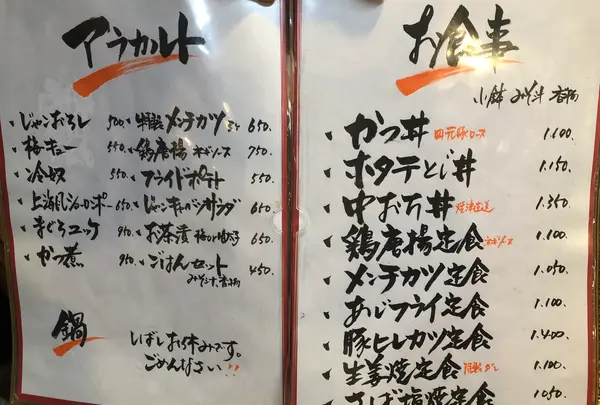 アラカルト
じゃこおろし 500
梅キュー 550
冷奴 550
上海風シューローポー 650
まぐろユッケ 950
かつ煮 950
特製メンチカツ 650.
鶏唐揚 ネギソース 750
フライドポテト 550
650
お茶漬 650
ごはんセット 450
みそ汁、香物
鍋
しばしお休みです。
ごめんなさい!!
お食事
小鉢 みそ汁 香物
かつ丼 四元豚ロース 1.100.
ホタテとじ丼 1.150.
中おち丼 焼津直送 1.350
鶏唐揚定食 ネギソース 1.100
メンチカツ定食 1.050.
あじフライ定食 1.100
豚ヒレカツ定食 1.400
生姜焼定食 1.100
さば塩焼定食 1050.